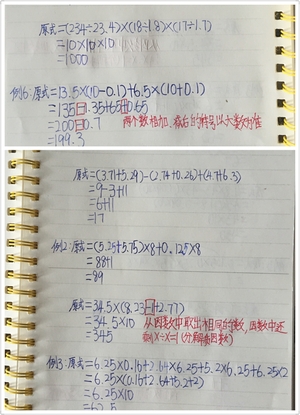 原式=(234÷23.4)×(18÷1.8)×(17÷1.7)
=10×10×10
=1000
例6:原式=13.5×(10-0.1)+6.5×(10+0.1)
=135-1.35+65+0.65
=200-0.7
两个数相加、减后的符号以大数为准
=199.3
原式=(3.71+5.29)-(2.74+0.26)+(4.7+6.3)
=9-3+11
=6+11
=17
例2:原式=(5.25+5.75)×8+0.125×8
=88+1
=89
原式=34.5×(8.23-1+2.77)
=34.5×10
从因数中取出相同的数,因数中还
=345
剩1×÷×=1(分解因数)
例3:原式=6.25×0.16+2.64×6.25+5.2×6.25+6.25×2
=6.25×(0.16+2.64+5.2+2)
=6.25×10
=62.5